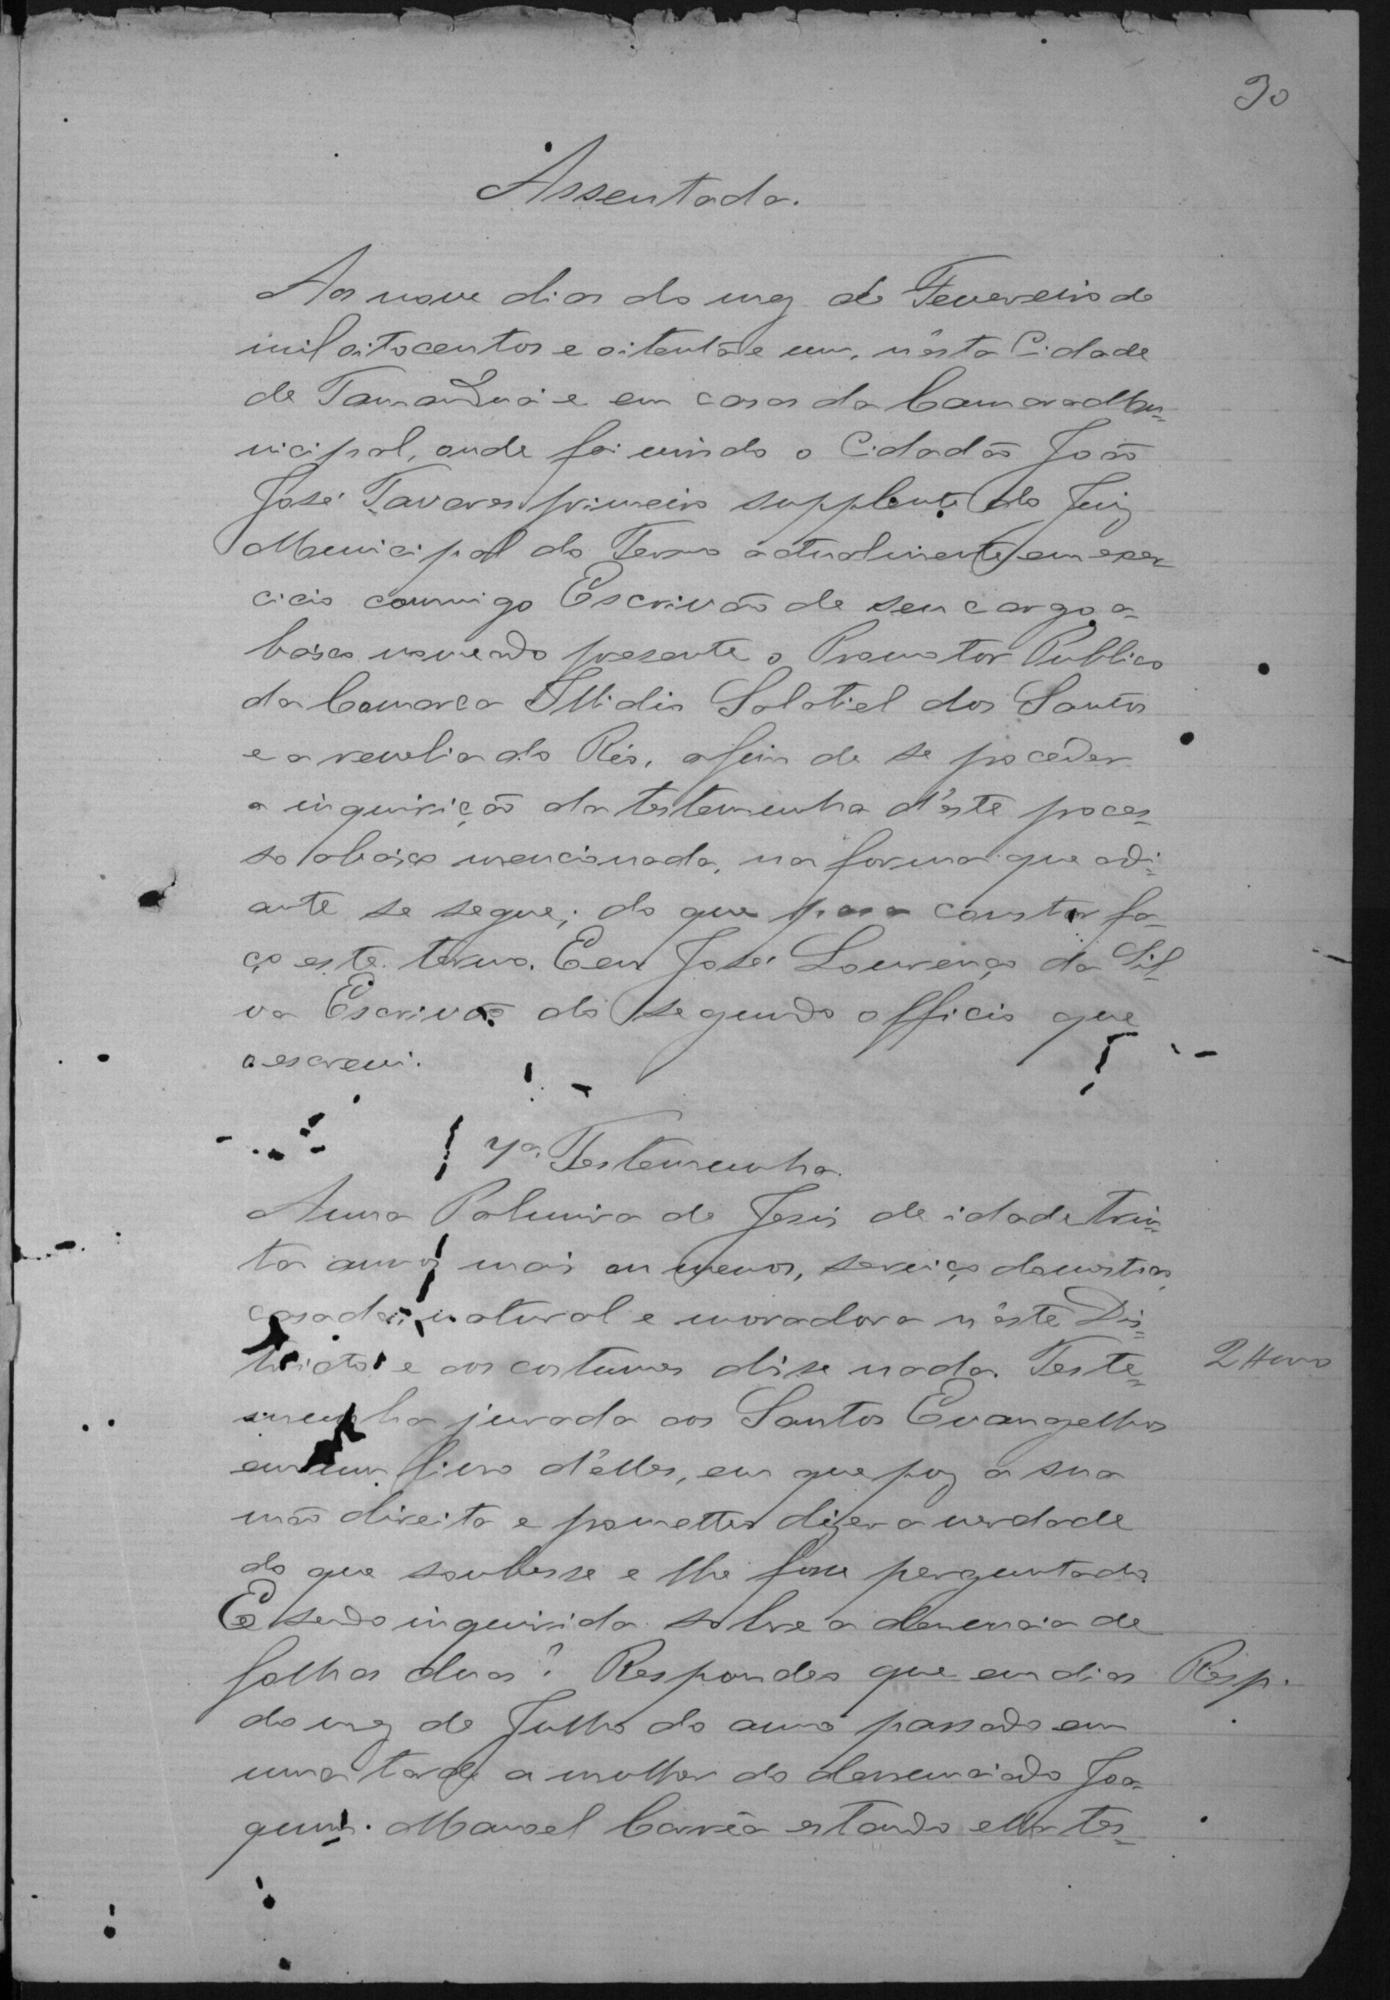 30
Assentada.
Aos nove dias do mez de Fevereiro de
mil oitocentos e oitenta e um, n'esta Cidade
de Tamanduá e em casas da Camara Mu-
nicipal, onde foi vindo o Cidadão João
José Tavares primeiro supplente do Juiz
Municipal do Termo actualmente em exer-
cicio commigo Escrivão de seu cargo a-
baixo nomeado presente o Promotor Publico
da Comarca Illidio Salatiel dos Santos
e a revelia do Réo, afim de se proceder
a inquirição da testemunha d'este proces-
so abaixo mencionada, na forma que adi-
ante se segue; do que para constar fa-
ço este termo. Eu José Lourenço da Sil-
va Escrivão do segundo officio que
o escrevi.
7a. Testemunha.
Anna Palmira de Jesus de idade trin-
ta annos mais ou menos, serviço domestico,
casada, natural e moradora n'este Dis-
tricto e aos costumes disse nada. Teste-
munha jurada aos Santos Evangelhos
em um livro d'elles, em que poz a sua
mão direita e prometteu dizer a verdade
do que soubesse e lhe fosse perguntado.
E sendo inquirida sobre a denuncia de
folhas duas? Respondeo que em dias
Resp.
do mez de Julho do anno passado em
uma tarde a mulher do denunciado Joa-
quim Manoel Corrêa estando ella tes-